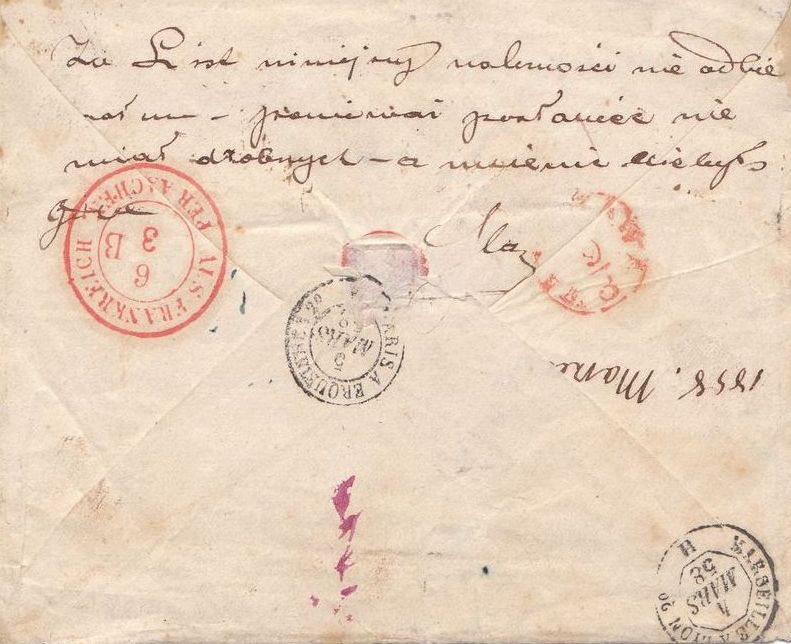 Za List niniejszy należności nie odbie
rałem – ponieważ posłaniec nie
miał drobnych – a mienić nie było
gdzie
AUS FRANKREICH
PER AACHEN
6
3
B
PARIS A ERQUELINES
5
MARS
58
1858. Mars
MARSEILLE A LYON 2º
4
MARS
58